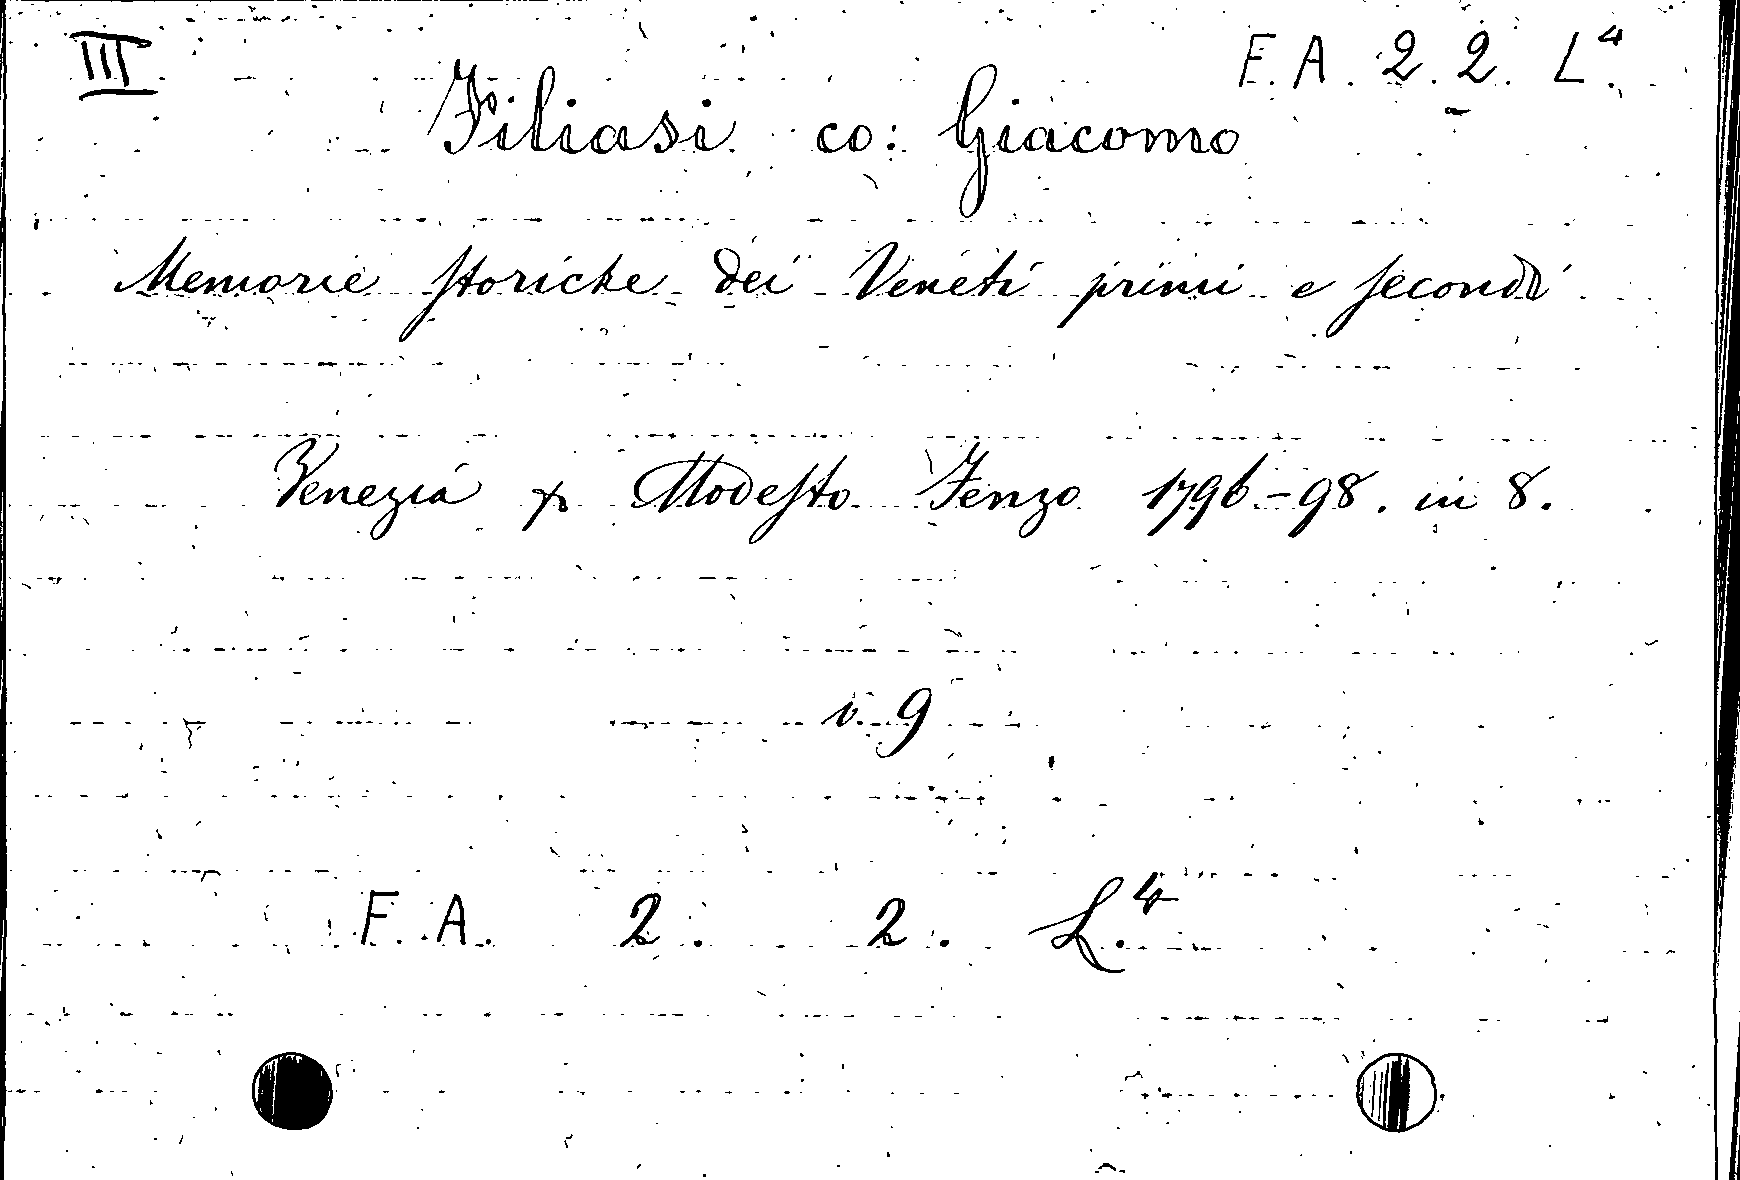 III F. A. 2. 2. L⁴.
Filiasi co: Giacomo
Memorie storiche dei Veneti primi e secondi
Venezia p Modesto Fenzo 1796-98. in 8.
v. 9
F. A. 2. 2. L.⁴